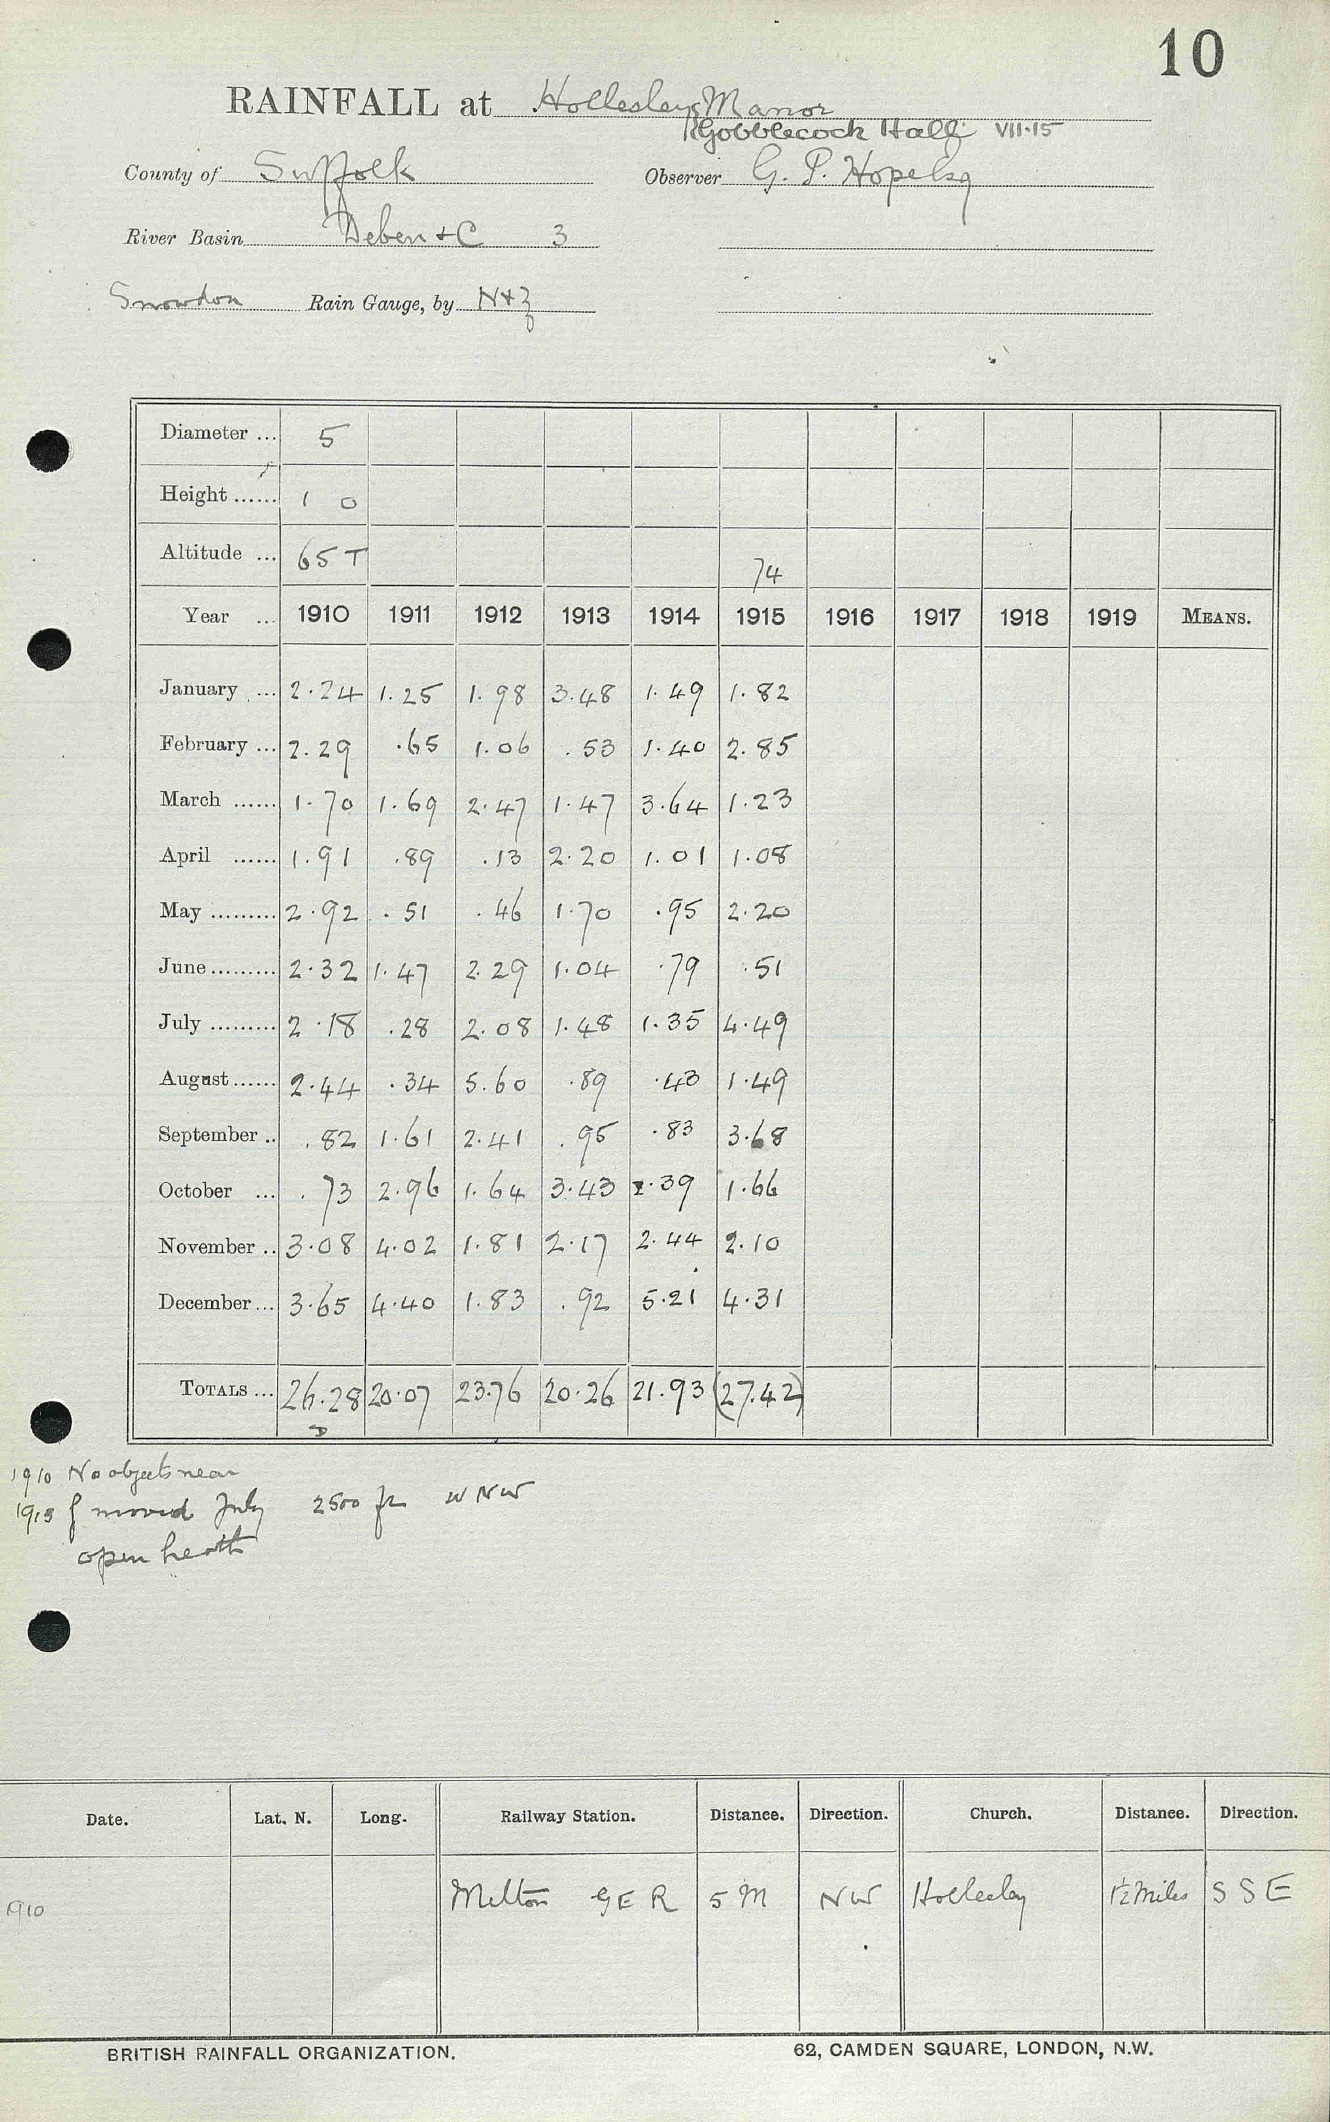 10
RAINFALL at Hollesley Manor
Gobblecock Hall VII.15
County of Suffolk Observer G. P. Hope Esq
River Basin Deben + C 3
Snowdon Rain Gauge, by N+Z
Diameter ... 5
Height ...... 1 0
Altitude ... 65 T 74
Year ... 1910 1911 1912 1913 1914 1915 1916 1917 1918 1919 MEANS.
January ... 2.24 1.25 1.98 3.48 1.49 1.82
February ... 2.29 .65 1.06 .53 1.40 2.85
March ...... 1.70 1.69 2.47 1.47 3.64 1.23
April ...... 1.91 .89 .13 2.20 1.01 1.08
May ......... 2.92 .51 .46 1.70 .95 2.20
June ......... 2.32 1.47 2.29 1.04 .79 .51
July ......... 2.18 .28 2.08 1.48 1.35 4.49
August ...... 2.44 .34 5.60 .89 .43 1.49
September .. .82 1.61 2.41 .95 .83 3.68
October ... .73 2.96 1.64 3.43 2.39 1.66
November .. 3.08 4.02 1.81 2.17 2.44 2.10
December ... 3.65 4.40 1.83 .92 5.21 4.31
TOTALS ... 26.28 20.07 23.76 20.26 21.93 (27.42)
1910 No objects near
1915 moved July 2500 ft WNW
open heath
Date. Lat. N. Long. Railway Station. Distance. Direction. Church. Distance. Direction.
1910 Melton G E R 5 M NW Hollesley 1½ miles S S E
BRITISH RAINFALL ORGANIZATION. 62, CAMDEN SQUARE, LONDON, N.W.